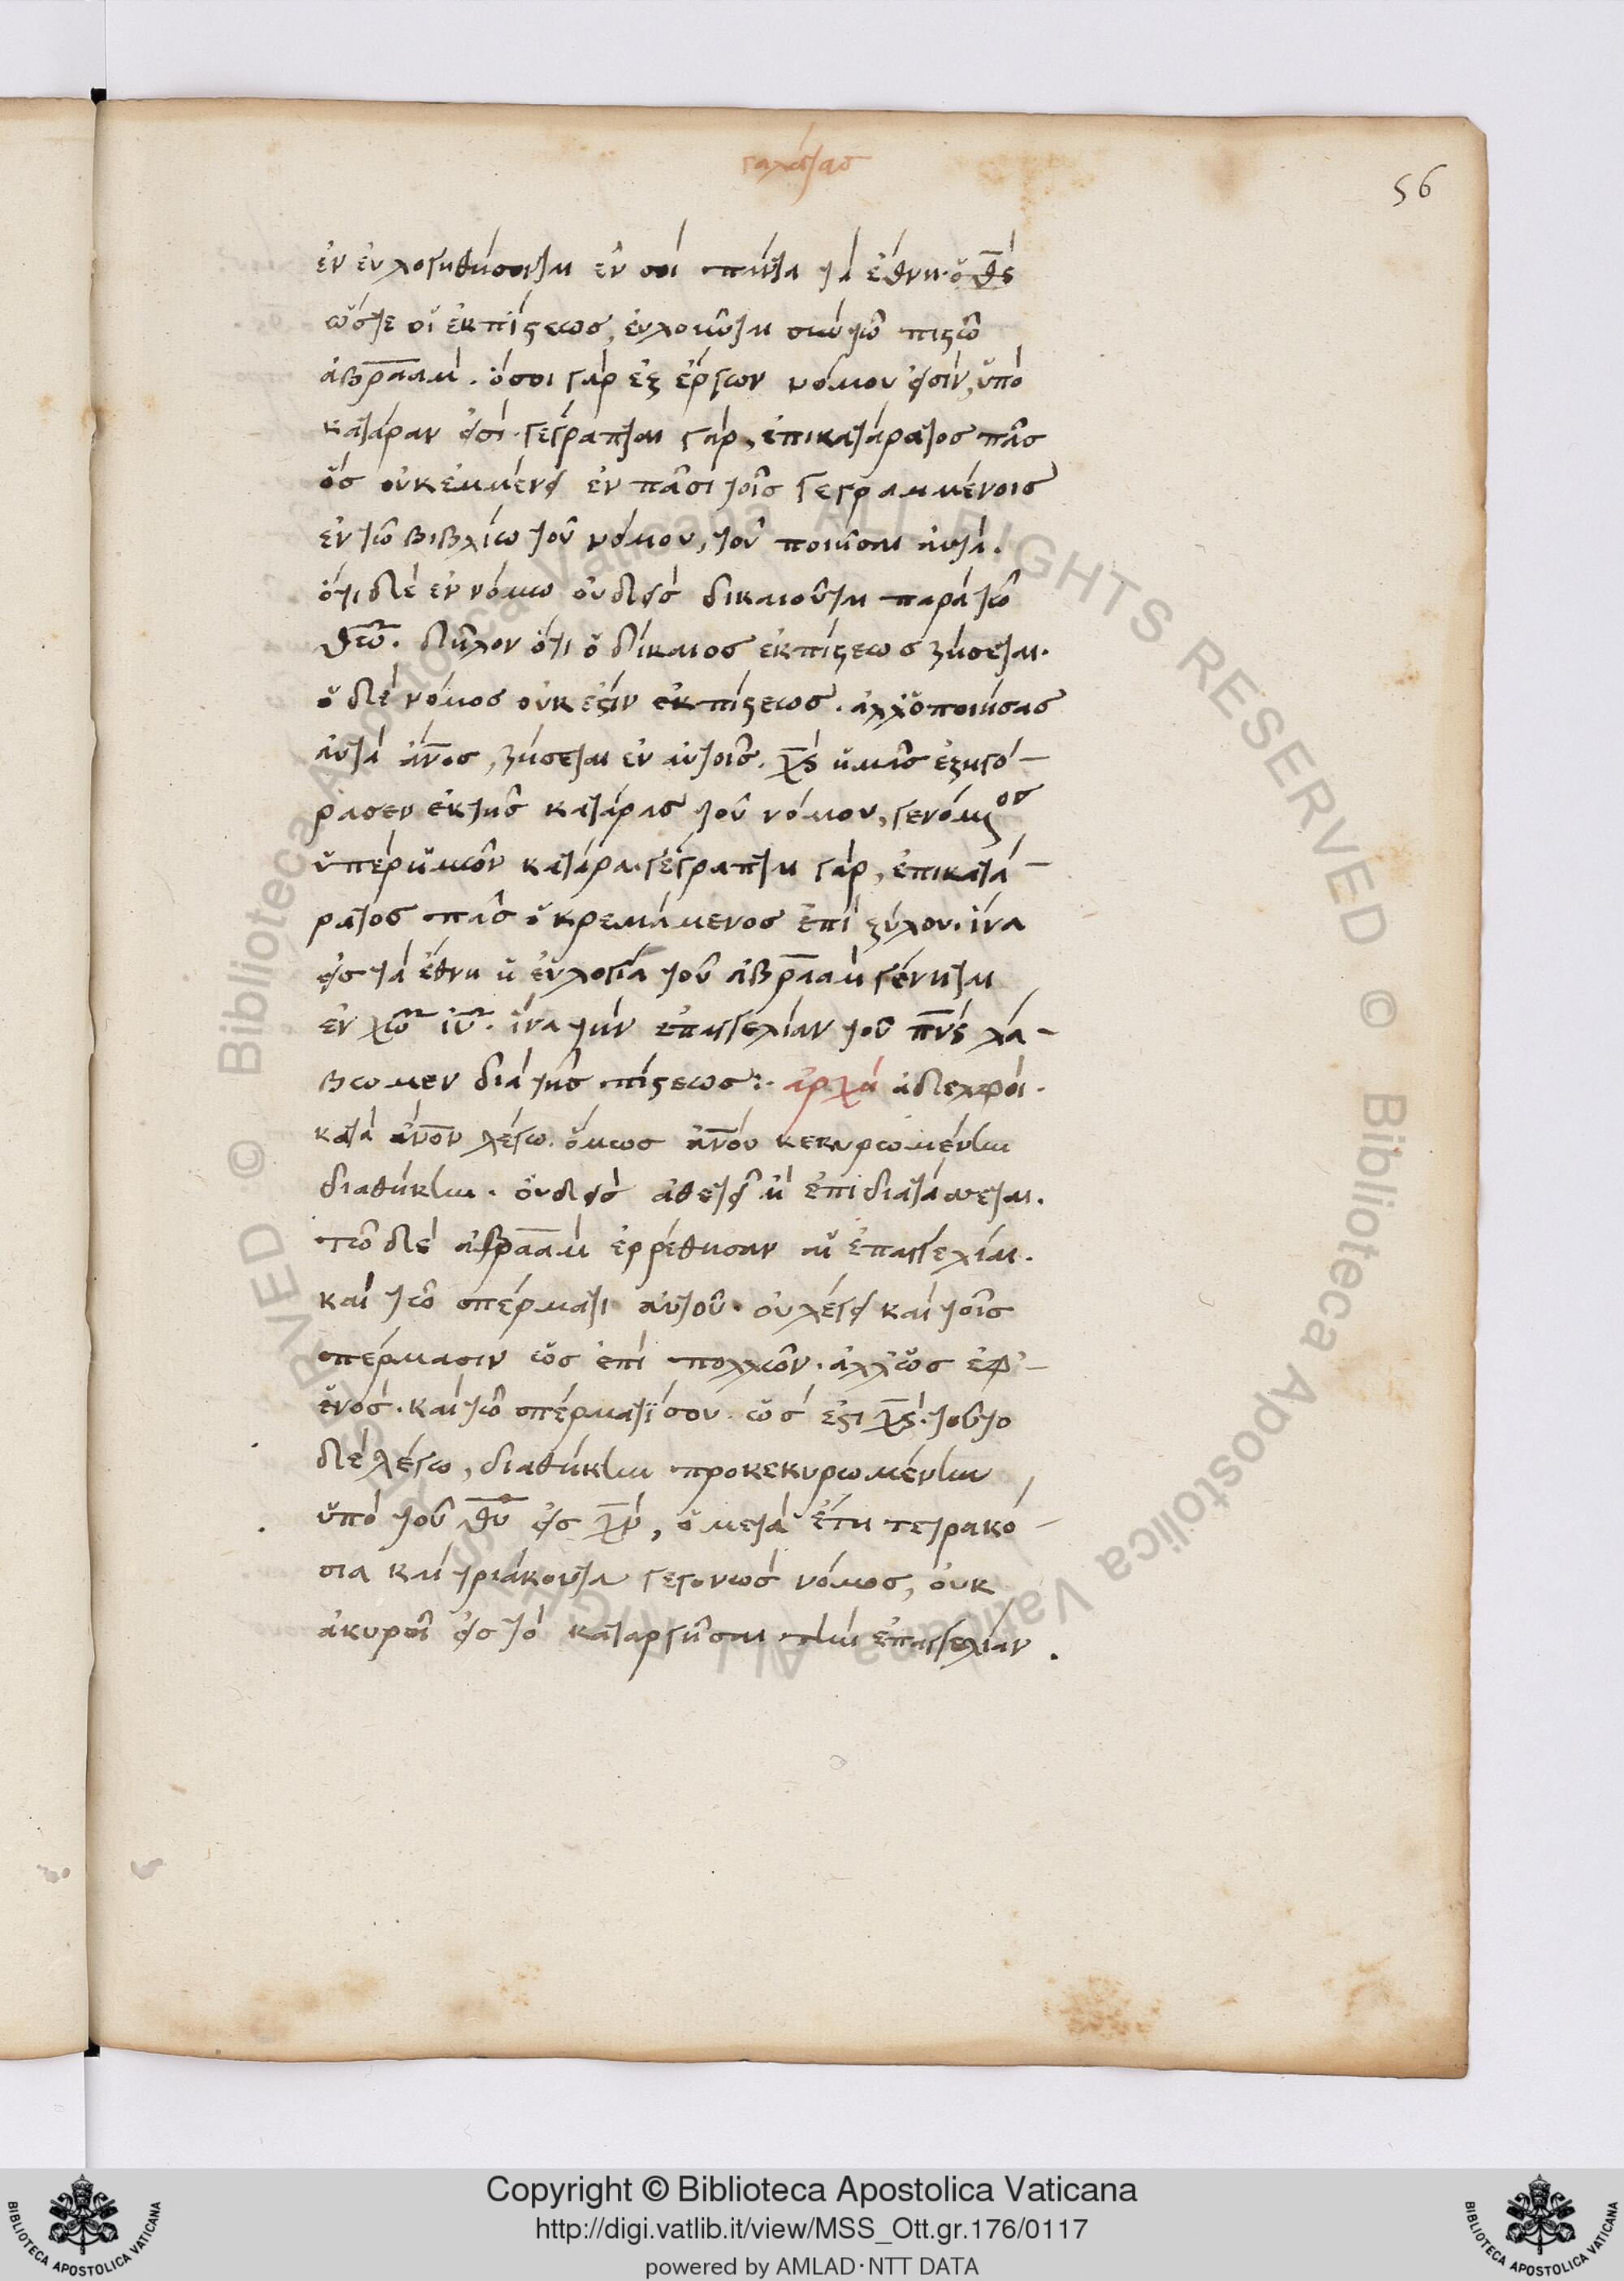 γαλάτας
56
ἐν ευλογηθήσονται ἐν σοὶ πάντα τὰ ἔθνη· ὁ θς
ὥστε οἱ ἐκπίστεως, ἐυλο
ἀβρααμ. ὅσοι γὰρ ἐξ ἔργων νόμου εἰσὶν, ὑπὸ
κατάραν εἰσὶ· γέγραπται γὰρ, ἐπικατάρατος πᾶς
ὃς οὐκ ἐμμένει ἐν πᾶσι τοῖς γεγραμμένοις
ἐν τῶ βιβλίω τοῦ νόμου, τοῦ ποιῆσαι ἀυτὰ.
ὅτι δὲ ἐν νόμω ὀυδεὶς δικαιοῦται παρὰ τῶ
θεῶ. δῆλον ὅτι ὁ δίκαιος ἐκπίστεως ζήσεται.
ὁ δὲ νόμος οὐκ ἔστιν ἐκ πίστεως. ἀλλ' ὁ ποιήσας
ἀυτὰ ἀνος, ζήσεται ἐν ἀυτοῖς. χς ἡμᾶς ἐξηγό-
ρασεν ἐκ τῆς κατάρας τοῦ νόμου, γενόμενος
ὑπὲρ ἡμῶν κατάρα· γέγραπται γὰρ, ἐπικατά-
ρατος πᾶς ὁ κρεμάμενος ἐπὶ ξύλου. ἵνα
εἰς τὰ ἔθνη ἡ ἐυλογία τοῦ ἀβρααμ γένηται
ἐν χω ιυ. ἵνα τὴν ἐπαγγελίαν τοῦ πνς λά-
βωμεν διὰ τῆς πίστεως:· ἀρχὴ ἀδελφοὶ.
κατὰ ἀνον λέγω. ὅμως ἀνου κεκυρωμένην
διαθήκην. ὀυδεὶς ἀθετεῖ ἢ ἐπιδιατάσσεται.
τῶ δὲ ἀβρααμ ἐρρέθησαν αἱ ἐπαγγελίαι.
καὶ τῶ σπέρματι αὐτοῦ. οὐ λέγει καὶ τοῖς
σπέρμασιν ὡς ἐπὶ πολλῶν. ἀλλ' ὡς ἐφ' -
ἑνός. καὶ τῶ σπέρματί σου. ὥς ἐστι χς. τοῦτο
δὲ λέγω, διαθήκην προκεκυρωμένην
ὑπὸ τοῦ θυ εἰς χν, ὁ μετὰ ἔτη τετρακό-
σια καὶ τριάκοντα γεγονὼς νόμος, ὀυκ
ἀκυροῖ εἰς τὸ καταργῆσαι τὴν ἐπαγγελίαν.
Copyright © Biblioteca Apostolica Vaticana
http://digi.vatlib.it/view/MSS_Ott.gr.176/0117
powered by AMLAD·NTT DATA